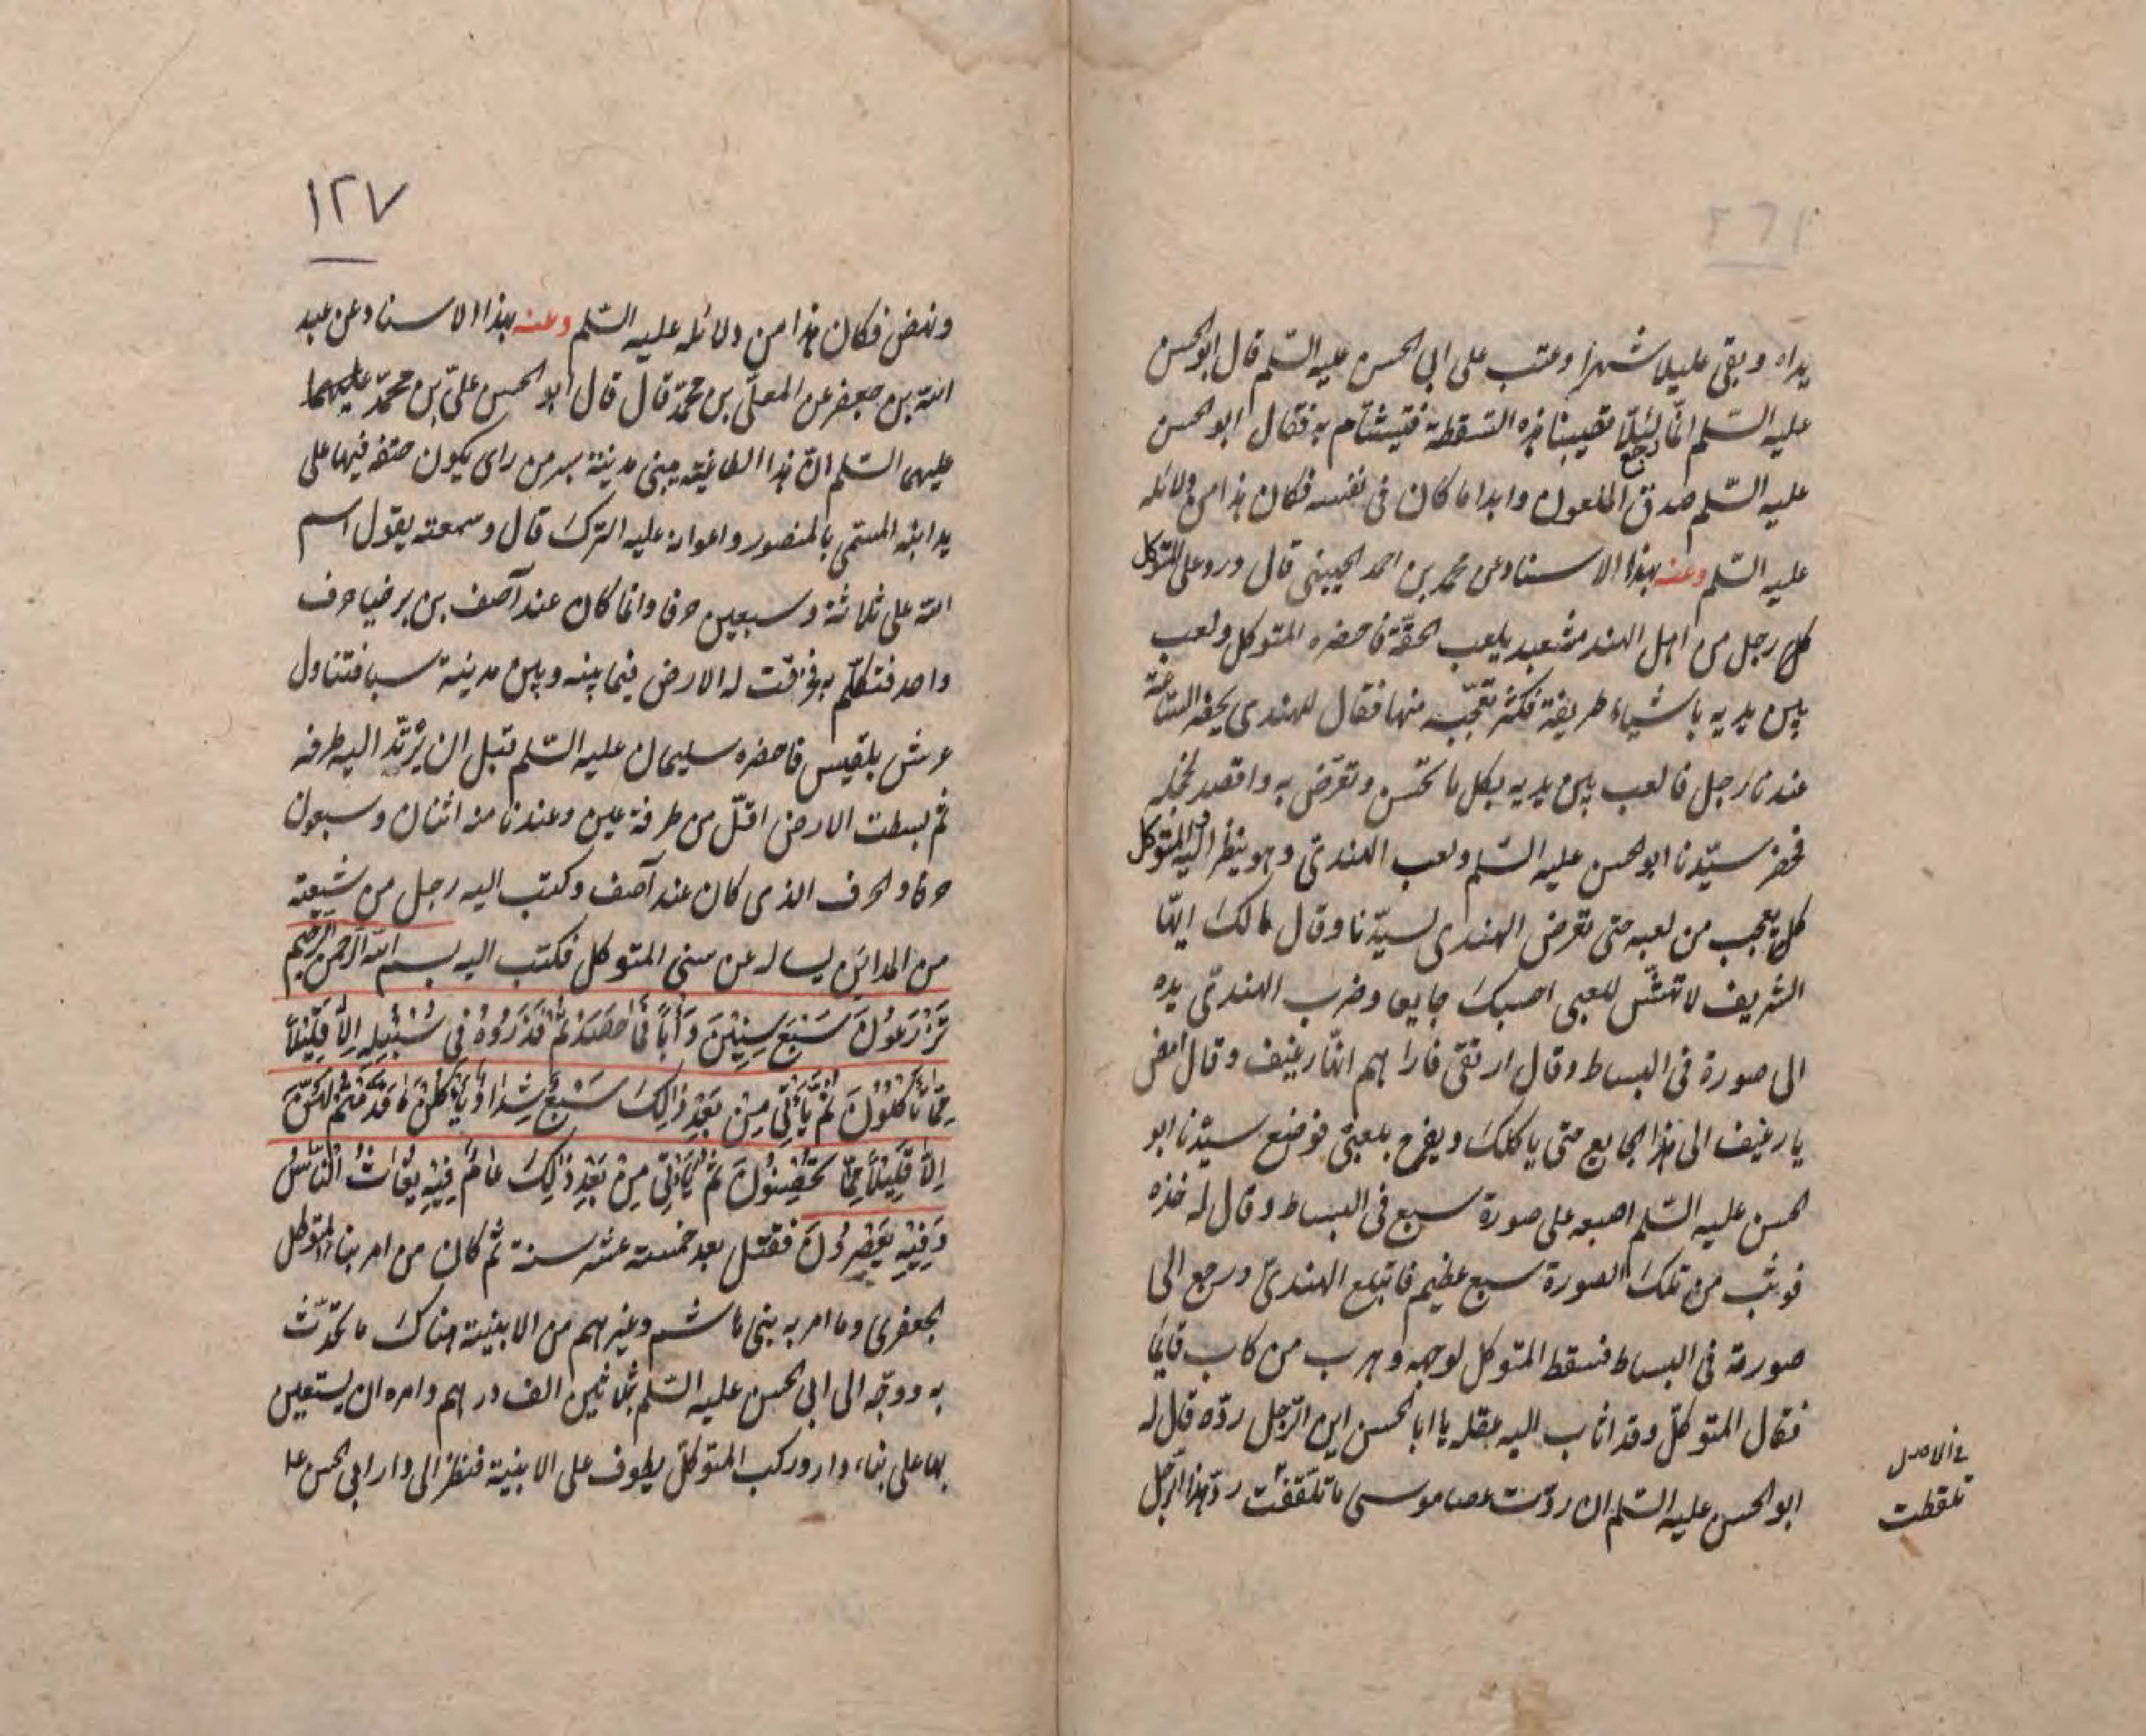 يداه وبقى عليلا شهرا وعتب على ابى الحسن عليه السّلم قال ابو الحسن
عليه السّلم انّا لئلّا تصيبنا هذه السّقطة فيتشأم به فقال ابو الحسن
عليه السّلم صدق الملعون وابدا ما كان فى نفسه فكان هذا من دلائله
عليه السّلم وعنه بهذا الاسناد عن محمد بن احمد الحسينى قال ورد على المتوكل
كل رجل من اهل الهند مشعبد يلعب الحقّة فاحضره المتوكل ولعب
بين يديه باشياء ظريفة فكثر تعجّبه منها فقال للهندى يحضر السّاعة
عندنا رجل فالعب بين يديه بكل ما تحسن وتعرّض به واقصد لخجله
فحضر سيّدنا ابو الحسن عليه السّلم ولعب الهندىّ وهو ينظر اليه والمتوكل
كل يعجب من لعبه حتى تعرض الهندى لسيّدنا وقال مالك ايّها
الشريف لا تهشّ للعبى احسبك جايعا وضرب الهندىّ يده
الى صورة فى البساط وقال ارتقى فاراهم انّها رغيف وقال امض
يا رغيف الى هذا الجايع حتى ياكلك ويفرح بلعبى فوضع سيّدنا ابو
الحسن عليه السّلم اصبعه على صورة سبع فى البساط وقال له خذه
فوثب من تلك الصورة سبع عظيم فابتلع الهندىّ ورجع الى
صورته فى البساط فسقط المتوكل لوجهه وهرب من كان قايما
فقال المتوكلّ وقد اثاب اليه عقله يا ابا الحسن اين الرّجل ردّه قال له
ابو الحسن عليه السّلم ان ردّت عصا موسى ما تلقّفت ردّ هذا الرّجل
فى الاصل
تلقطت
١٢٧
ونهض فكان هذا من دلائله عليه السّلم وعنه بهذا الاسناد عن عبد
الله بن جعفر عن المعلّى بن محمّد قال قال ابو الحسن علىّ بن محمّد عليهما
عليهما السّلم انّ هذا الطاغية يبنى مدينة بسر من راى يكون حتفه فيها على
يد ابنه المسمّى بالمنصور واعوانه عليه الترك قال وسمعته يقول اسم
الله على ثلاثة وسبعين حرفا وانما كان عند آصف بن برخيا حرف
واحد فتكلّم به فخرقت له الارض فيما بينه وبين مدينة سبا فتناول
عرش بلقيس فاحضره سليمان عليه السّلم قبل ان يرتدّ اليه طرفه
ثم بسطت الارض اقلّ من طرفة عين وعندنا منه اثنان وسبعون
حرفا والحرف الذى كان عند آصف وكتب اليه رجل من شيعته
من المدائن يساله عن سنى المتوكل فكتب اليه بسم الله الرّحمن الرّحيم
تَزْرَعُونَ سَبْعَ سِنِينَ دَأَبًا فَمَا حَصَدْتُمْ فَذَرُوهُ فِى سُنْبُلِهِ إِلَّا قَلِيلًا
مِمَّا تَأْكُلُونَ ثُمَّ يَأْتِى مِنْ بَعْدِ ذَالِكَ سَبْعٌ شِدَادٌ يَأْكُلْنَ مَا قَدَّمْتُمْ لَهُنَّ
إِلَّا قَلِيلًا مِمَّا تُحْصِنُونَ ثُمَّ يَأْتِى مِنْ بَعْدِ ذَالِكَ عَامٌ فِيهِ يُغَاثُ النَّاسُ
وَفِيهِ يَعْصِرُونَ فقتل بعد خمسة عشر سنة ثم كان من امر بناء المتوكل
الجعفرى وما امر به بنى هاشم وغيرهم من الابنية هناك ما تحدّث
به ووجّه الى ابى الحسن عليه السّلم بثلاثين الف درهم وامره ان يستعين
بها على بناء دار وركب المتوكلّ يطوف على الابنية فنظر الى دار ابى الحسن عل